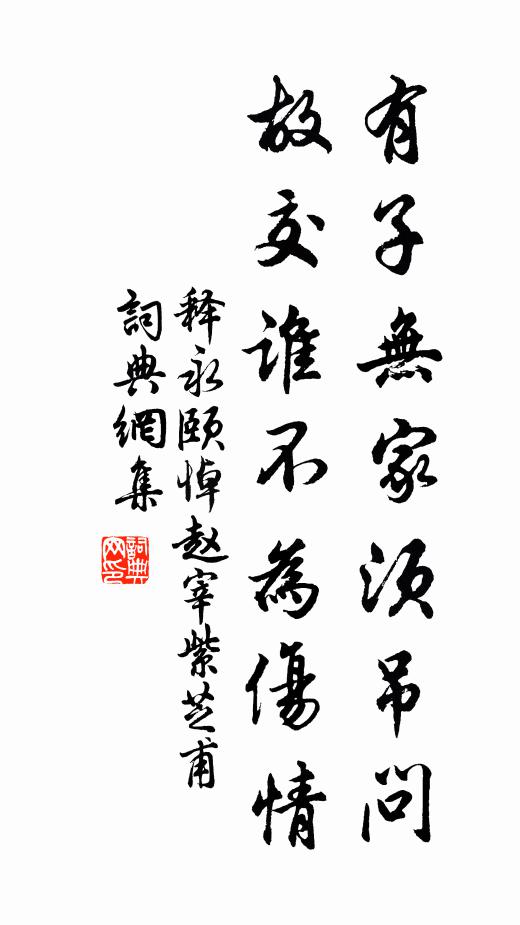 有子無家須吊問
故交誰不為傷情
释永颐悼赵宰紫芝甫
詞典網集
詞典網印